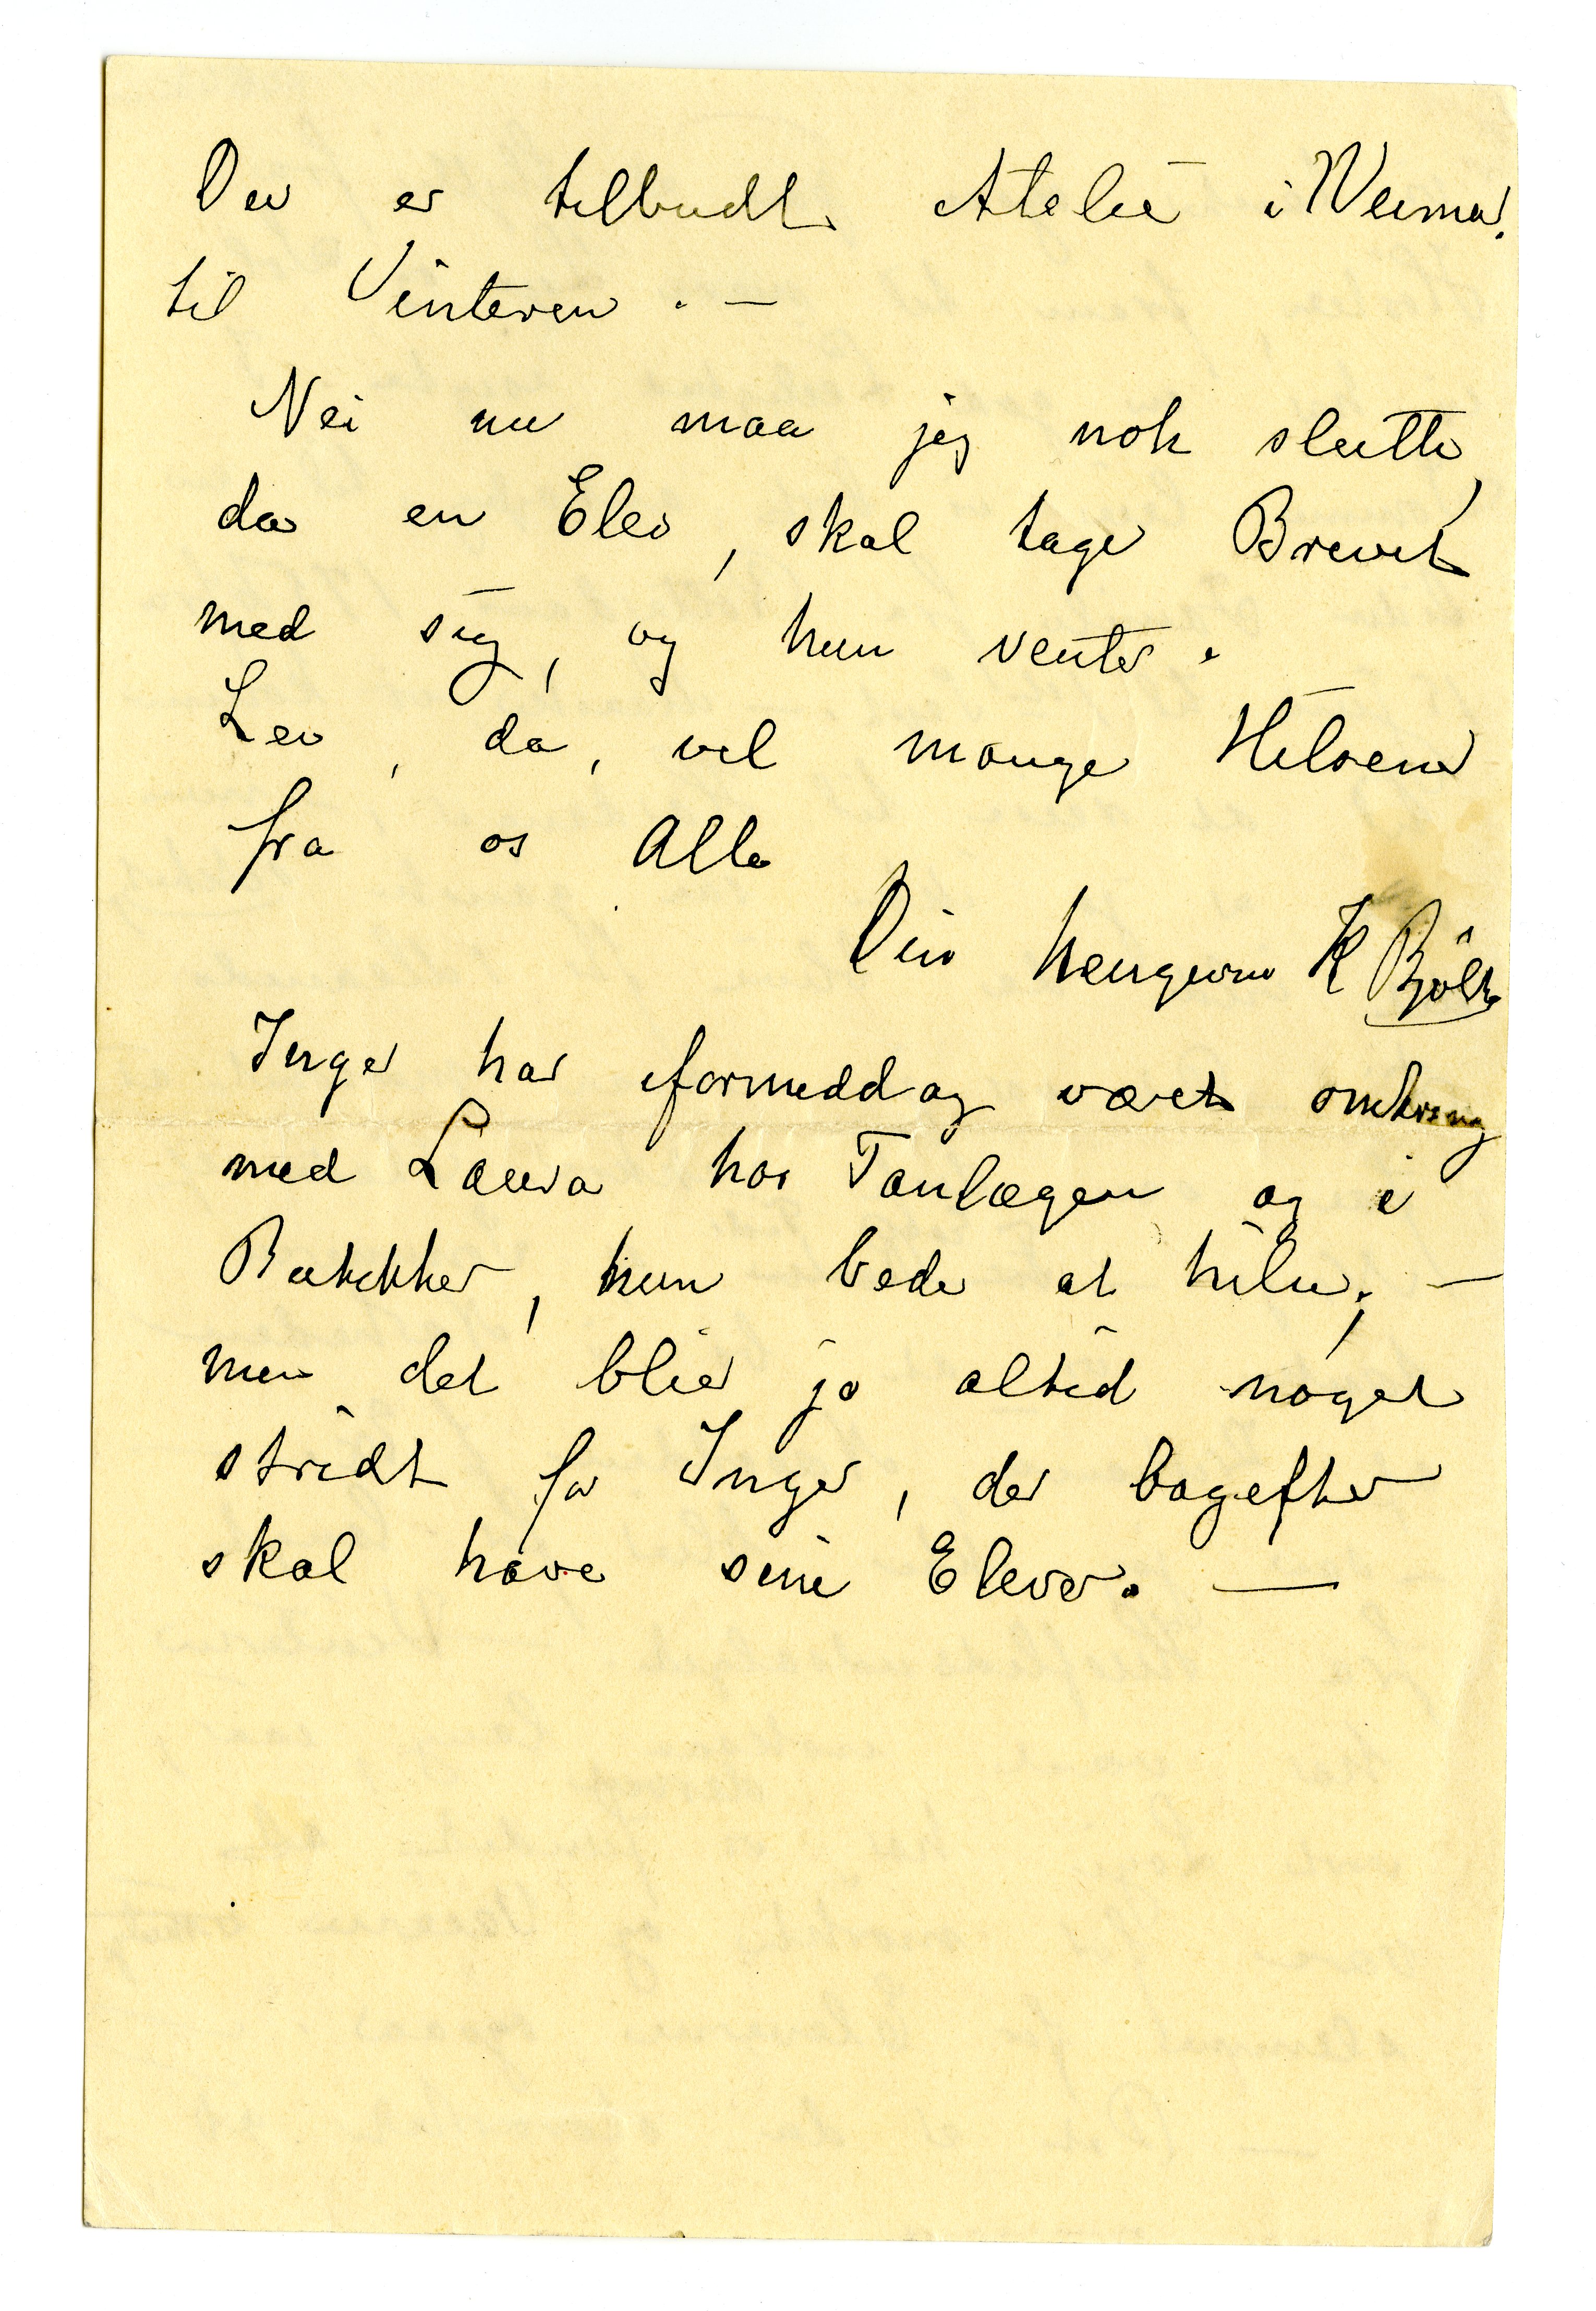 Der er tilbudt Atelie i Weimar.
til Vinteren . —
Nei nu maa jeg nok slutte,
da en Elev, skal tage Brevet
med sig, og hun venter.
Lev, da, vel mange Hilsener
fra os Alle
Din hengivne K Bjölk
Inger har iformiddag været omkring
med Laura hos Tanlægen og i
Butikker, hun beder at hilse; —
men det blir jo altid noget
stridt for Inger, der bagefter
skal have sine Elever. —